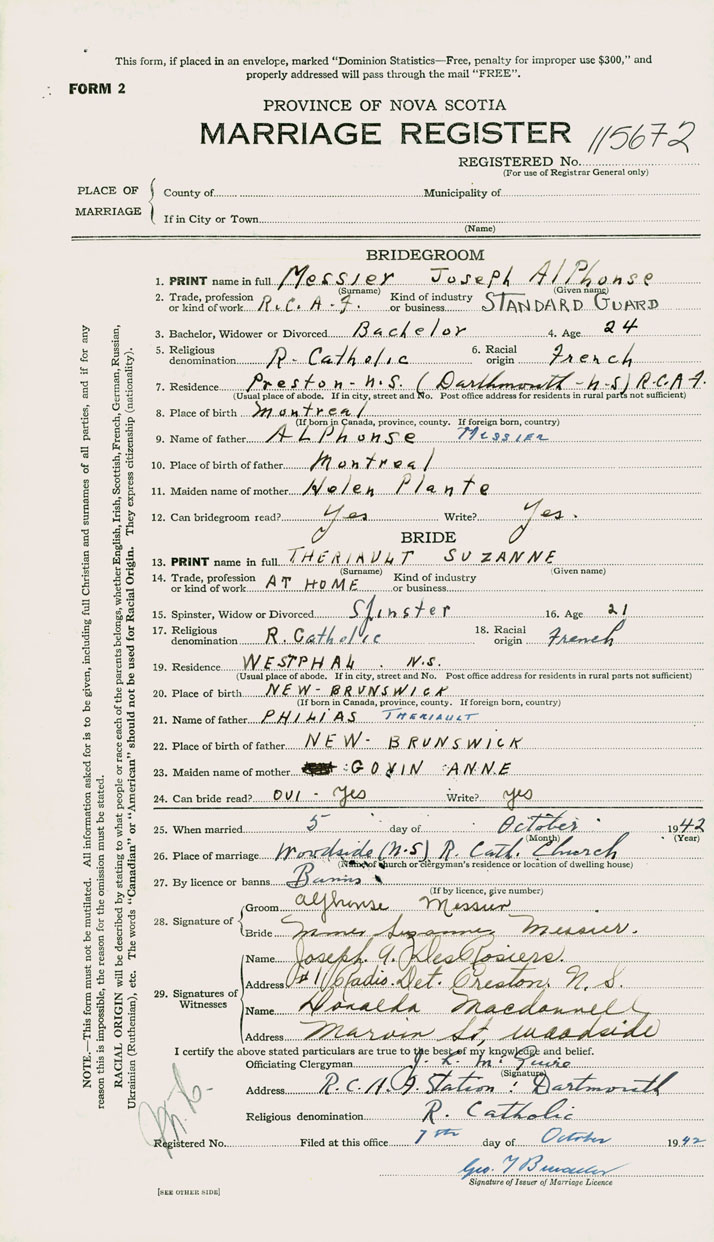 This form, if placed in an envelope, marked “Dominion Statistics—Free, penalty for improper use $300,” and
properly addressed will pass through the mail “FREE”.
FORM 2
PROVINCE OF NOVA SCOTIA
MARRIAGE REGISTER 115672
REGISTERED No.
(For use of Registrar General only)
PLACE OF MARRIAGE
County of Municipality of
If in City or Town
(Name)
BRIDEGROOM
1. PRINT name in full Messier Joseph AlPhonse
(Surname) (Given name)
2. Trade, profession or kind of work R.C.A.F. Kind of industry or business STANDARD GUARD
3. Bachelor, Widower or Divorced Bachelor 4. Age 24
5. Religious denomination R- Catholic 6. Racial origin French
7. Residence Preston- n.s. (Darthmouth -n-s) R.C.A.F.
(Usual place of abode. If in city, street and No. Post office address for residents in rural parts not sufficient)
8. Place of birth Montreal
(If born in Canada, province, county. If foreign born, country)
9. Name of father ALPhonse MESSIER
10. Place of birth of father Montreal
11. Maiden name of mother Helen Plante
12. Can bridegroom read? Yes Write? Yes.
BRIDE
13. PRINT name in full THERIAULT SUZANNE
(Surname) (Given name)
14. Trade, profession or kind of work AT HOME Kind of industry or business
15. Spinster, Widow or Divorced Spinster 16. Age 21
17. Religious denomination R. Catholic 18. Racial origin French
19. Residence WESTPHAL . N.S.
(Usual place of abode. If in city, street and No. Post office address for residents in rural parts not sufficient)
20. Place of birth NEW-BRUNSWICK
(If born in Canada, province, county. If foreign born, country)
21. Name of father PHILIAS THERIAULT
22. Place of birth of father NEW- BRUNSWICK
23. Maiden name of mother ANNE
24. Can bride read? OUI - yes Write? yes
25. When married 5 day of October 1942
(Month) (Year)
26. Place of marriage Woodside (N.S) R. Cath. Church
(Name of church or clergyman's residence or location of dwelling house)
27. By licence or banns Banns
(If by licence, give number)
28. Signature of
Groom Alphonse Messier
Bride Suzanne Messier.
29. Signatures of Witnesses
Name Joseph A. DesRosiers.
Address #1 Radio. Det. Preston, N. S.
Name Donalda Macdonnell
Address Marvin St, Woodside
I certify the above stated particulars are true to the best of my knowledge and belief.
Officiating Clergyman
(Signature)
Address R.C.A.F. Station : Dartmouth
Religious denomination R. Catholic
Registered No. Filed at this office 7th day of October 1942
Geo.
Signature of Issuer of Marriage Licence
[SEE OTHER SIDE]
NOTE.—This form must not be mutilated. All information asked for is to be given, including full Christian and surnames of all parties, and if for any
reason this is impossible, the reason for the omission must be stated.
RACIAL ORIGIN will be described by stating to what people or race each of the parents belongs, whether English, Irish, Scottish, French, German, Russian,
Ukrainian (Ruthenian), etc. The words “Canadian” or “American” should not be used for Racial Origin. They express citizenship (nationality).